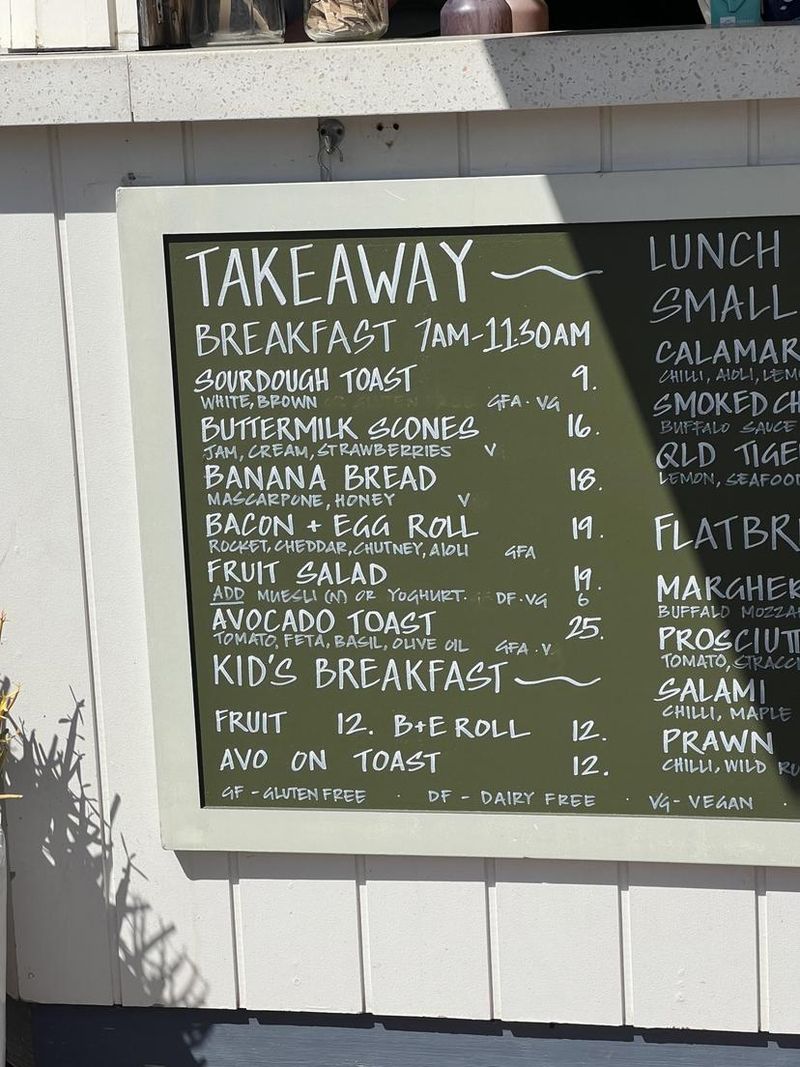 TAKEAWAY
BREAKFAST 7AM-11.30AM
SOURDOUGH TOAST 9.
WHITE, BROWN GFA · VG
BUTTERMILK SCONES 16.
JAM, CREAM, STRAWBERRIES V
BANANA BREAD 18.
MASCARPONE, HONEY V
BACON + EGG ROLL 19.
ROCKET, CHEDDAR, CHUTNEY, AIOLI GFA
FRUIT SALAD 19.
ADD MUESLI (N) OR YOGHURT. DF·VG 6
AVOCADO TOAST 25.
TOMATO, FETA, BASIL, OLIVE OIL GFA·V
KID'S BREAKFAST
FRUIT 12. B+E ROLL 12.
AVO ON TOAST 12.
GF - GLUTEN FREE · DF - DAIRY FREE · VG - VEGAN ·
LUNCH
SMALL
CALAMAR
CHILLI, AIOLI, LEM
SMOKED CH
BUFFALO SAUCE
QLD TIGE
LEMON, SEAFOO
FLATBR
MARGHER
BUFFALO MOZZA
PROSCIUTT
TOMATO, STRACC
SALAMI
CHILLI, MAPLE
PRAWN
CHILLI, WILD RU